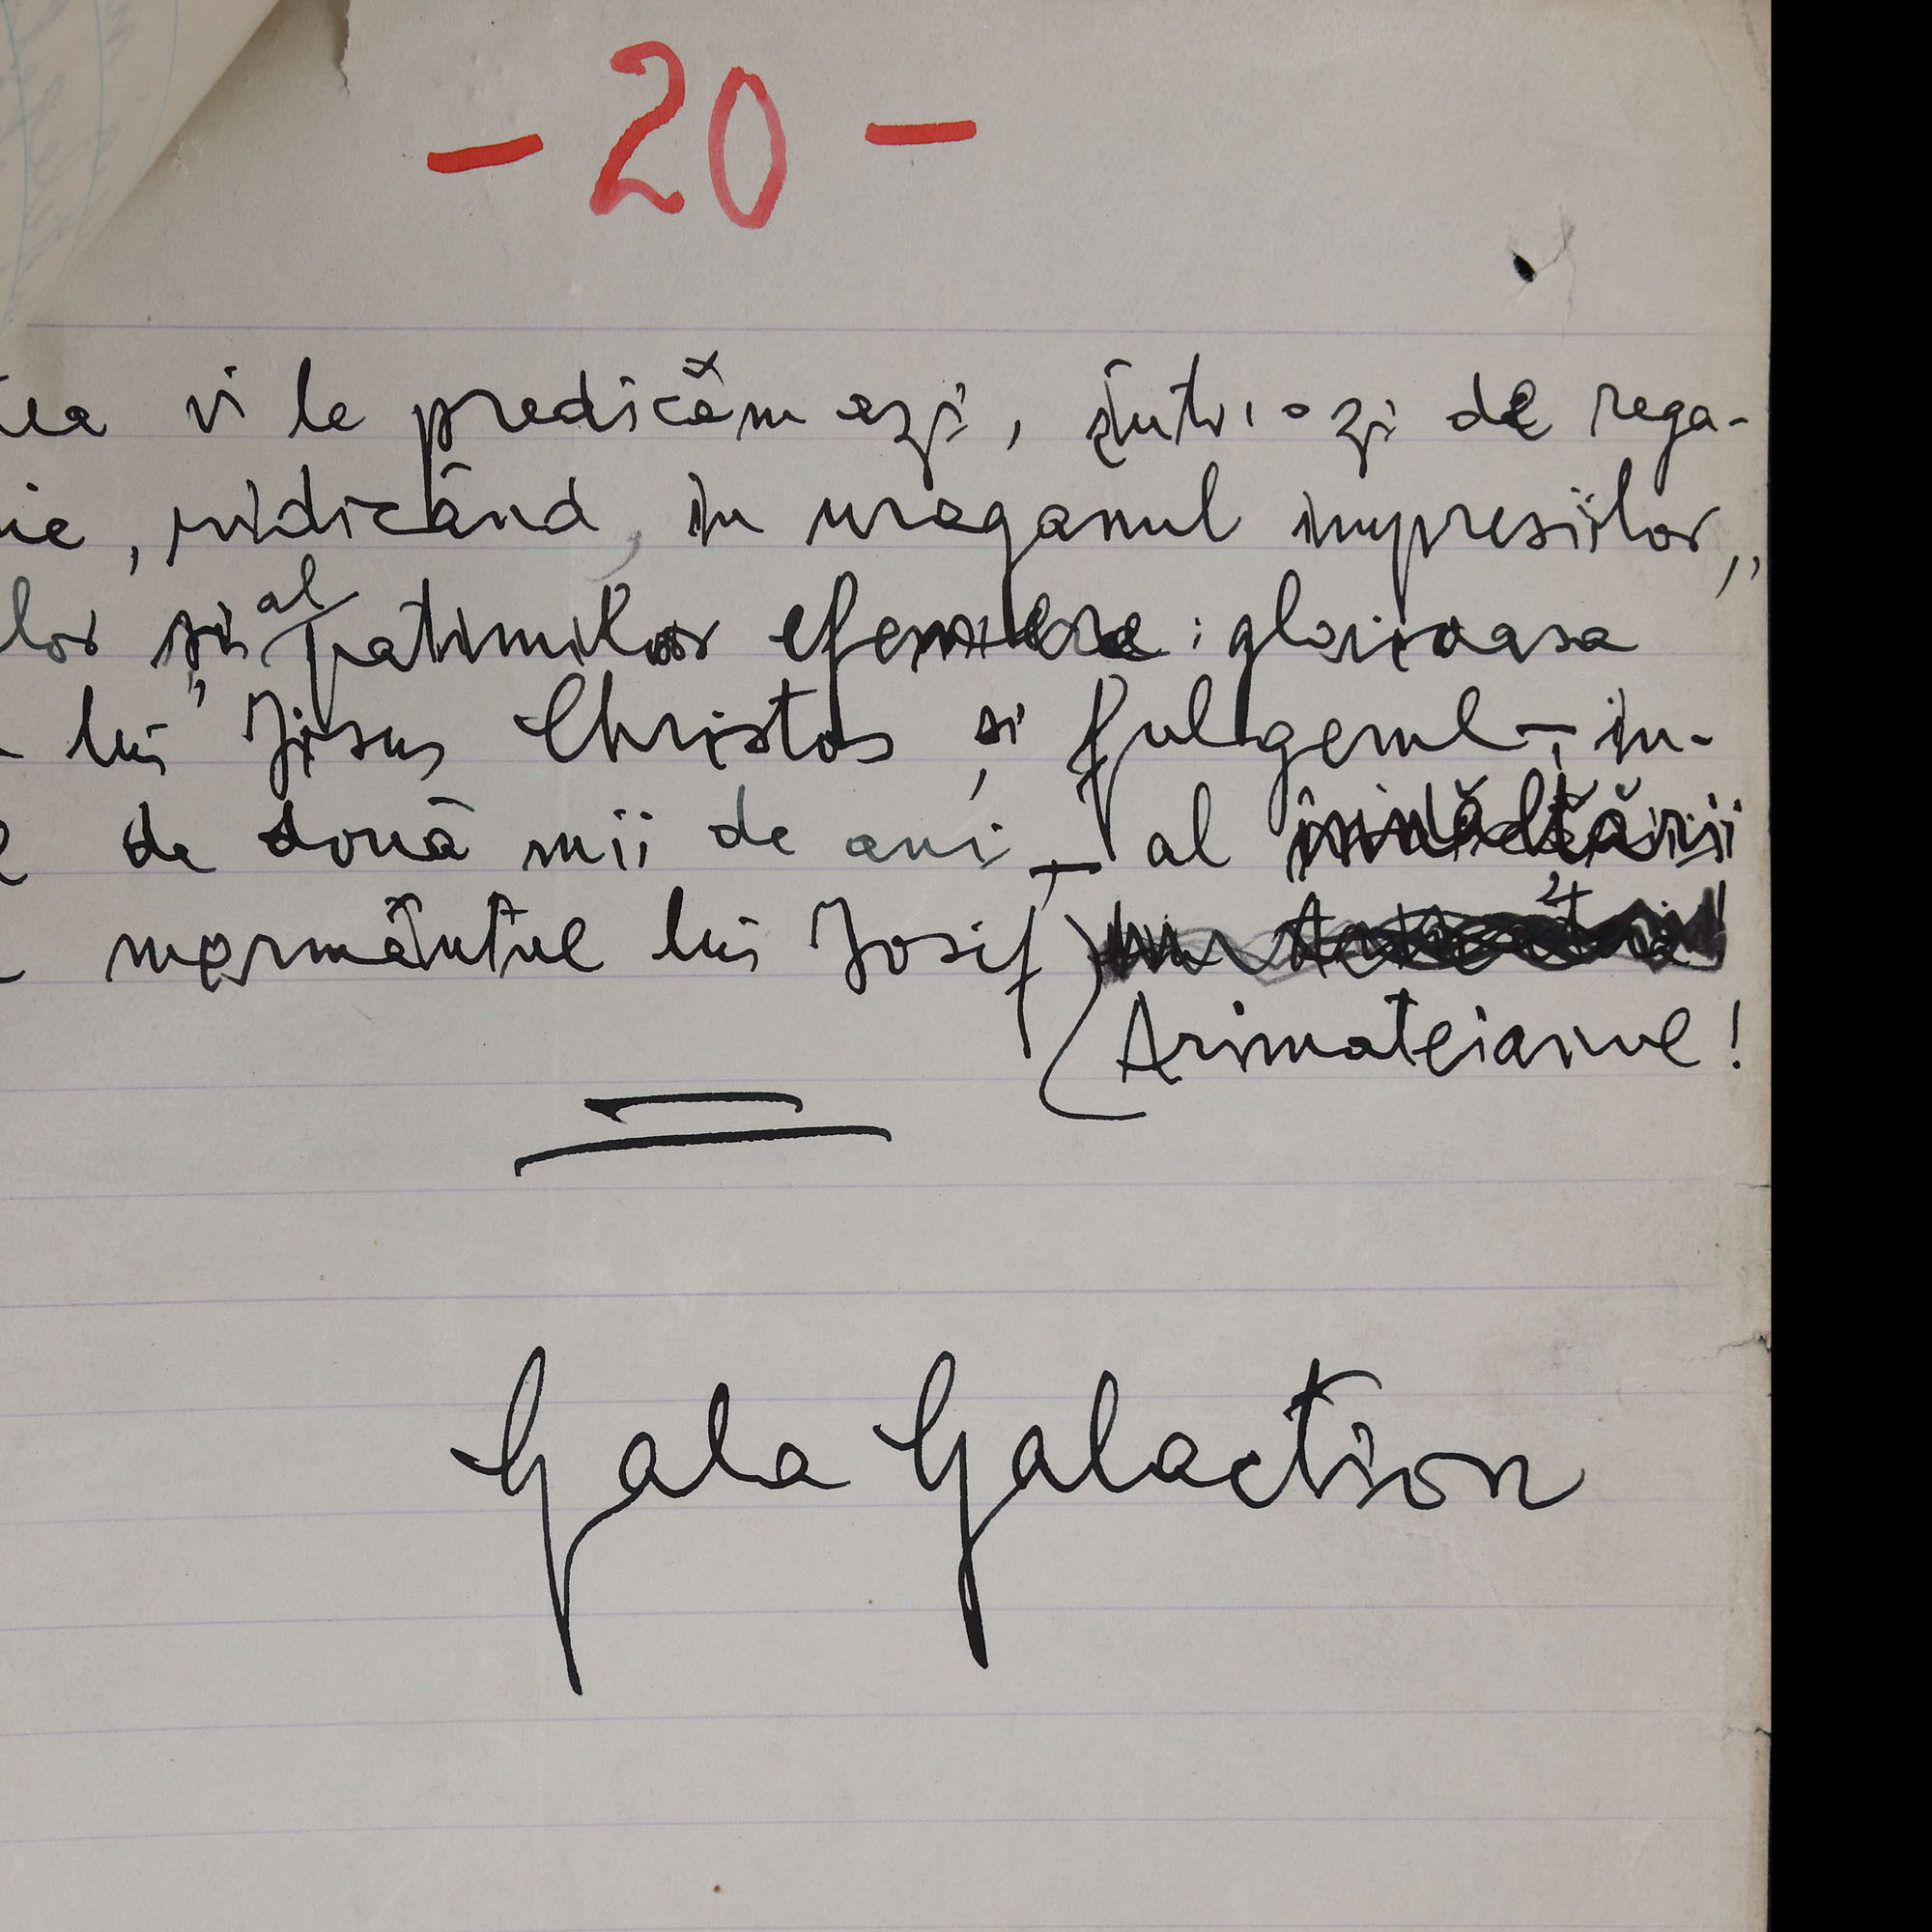 - 20 -
vi le predicăm azi, într-o zi de rega-
, ridicând, în uraganul impresiilor,
lor și al patimilor efemere: glorioasa
lui Iisus Christos și fulgerul - în-
de două mii de ani - al
mormântul lui Iosif
Arimateianul!
Gala Galaction